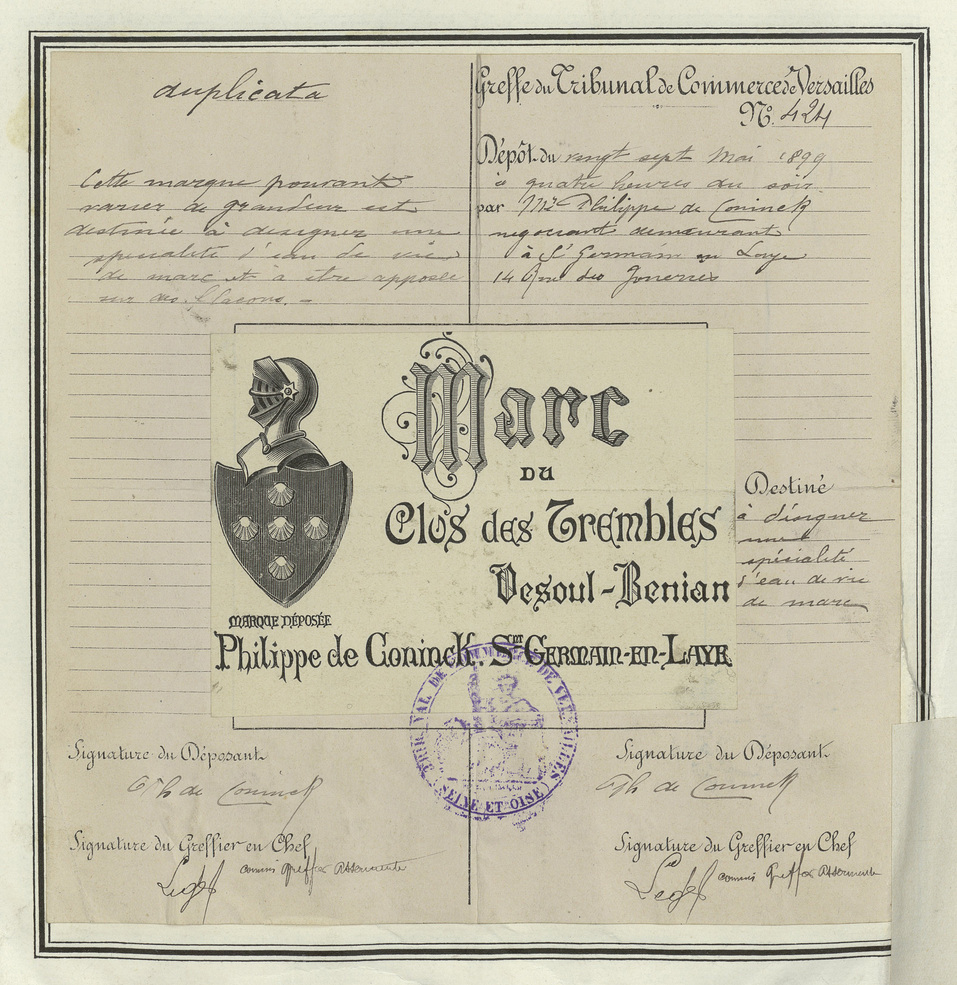 duplicata
Cette marque pouvant
varier de grandeur est
destinée à désigner une
spécialité d'eau de vie
de marc et à être apposée
sur des flacons. –
Greffe du Tribunal de Commerce de Versailles
No. 424
Dépôt du vingt sept Mai 1899
à quatre heures du soir
par Mr Philippe de Coninck
négociant demeurant
à St Germain en Laye
14 Rue des
Marc
DU
Clos des Trembles
Vesoul-Benian
MARQUE DÉPOSÉE
Philippe de Coninck. St GERMAIN-EN-LAYE
Destiné
à désigner
une
spécialité
d'eau de vie
de marc
TRIBUNAL DE COMMERCE DE VERSAILLES
(SEINE-ET-OISE)
Signature du Déposant
Ph de Coninck
Signature du Greffier en Chef
commis Greffier Assermenté
Signature du Déposant
Ph de Coninck
Signature du Greffier en Chef
commis Greffier Assermenté